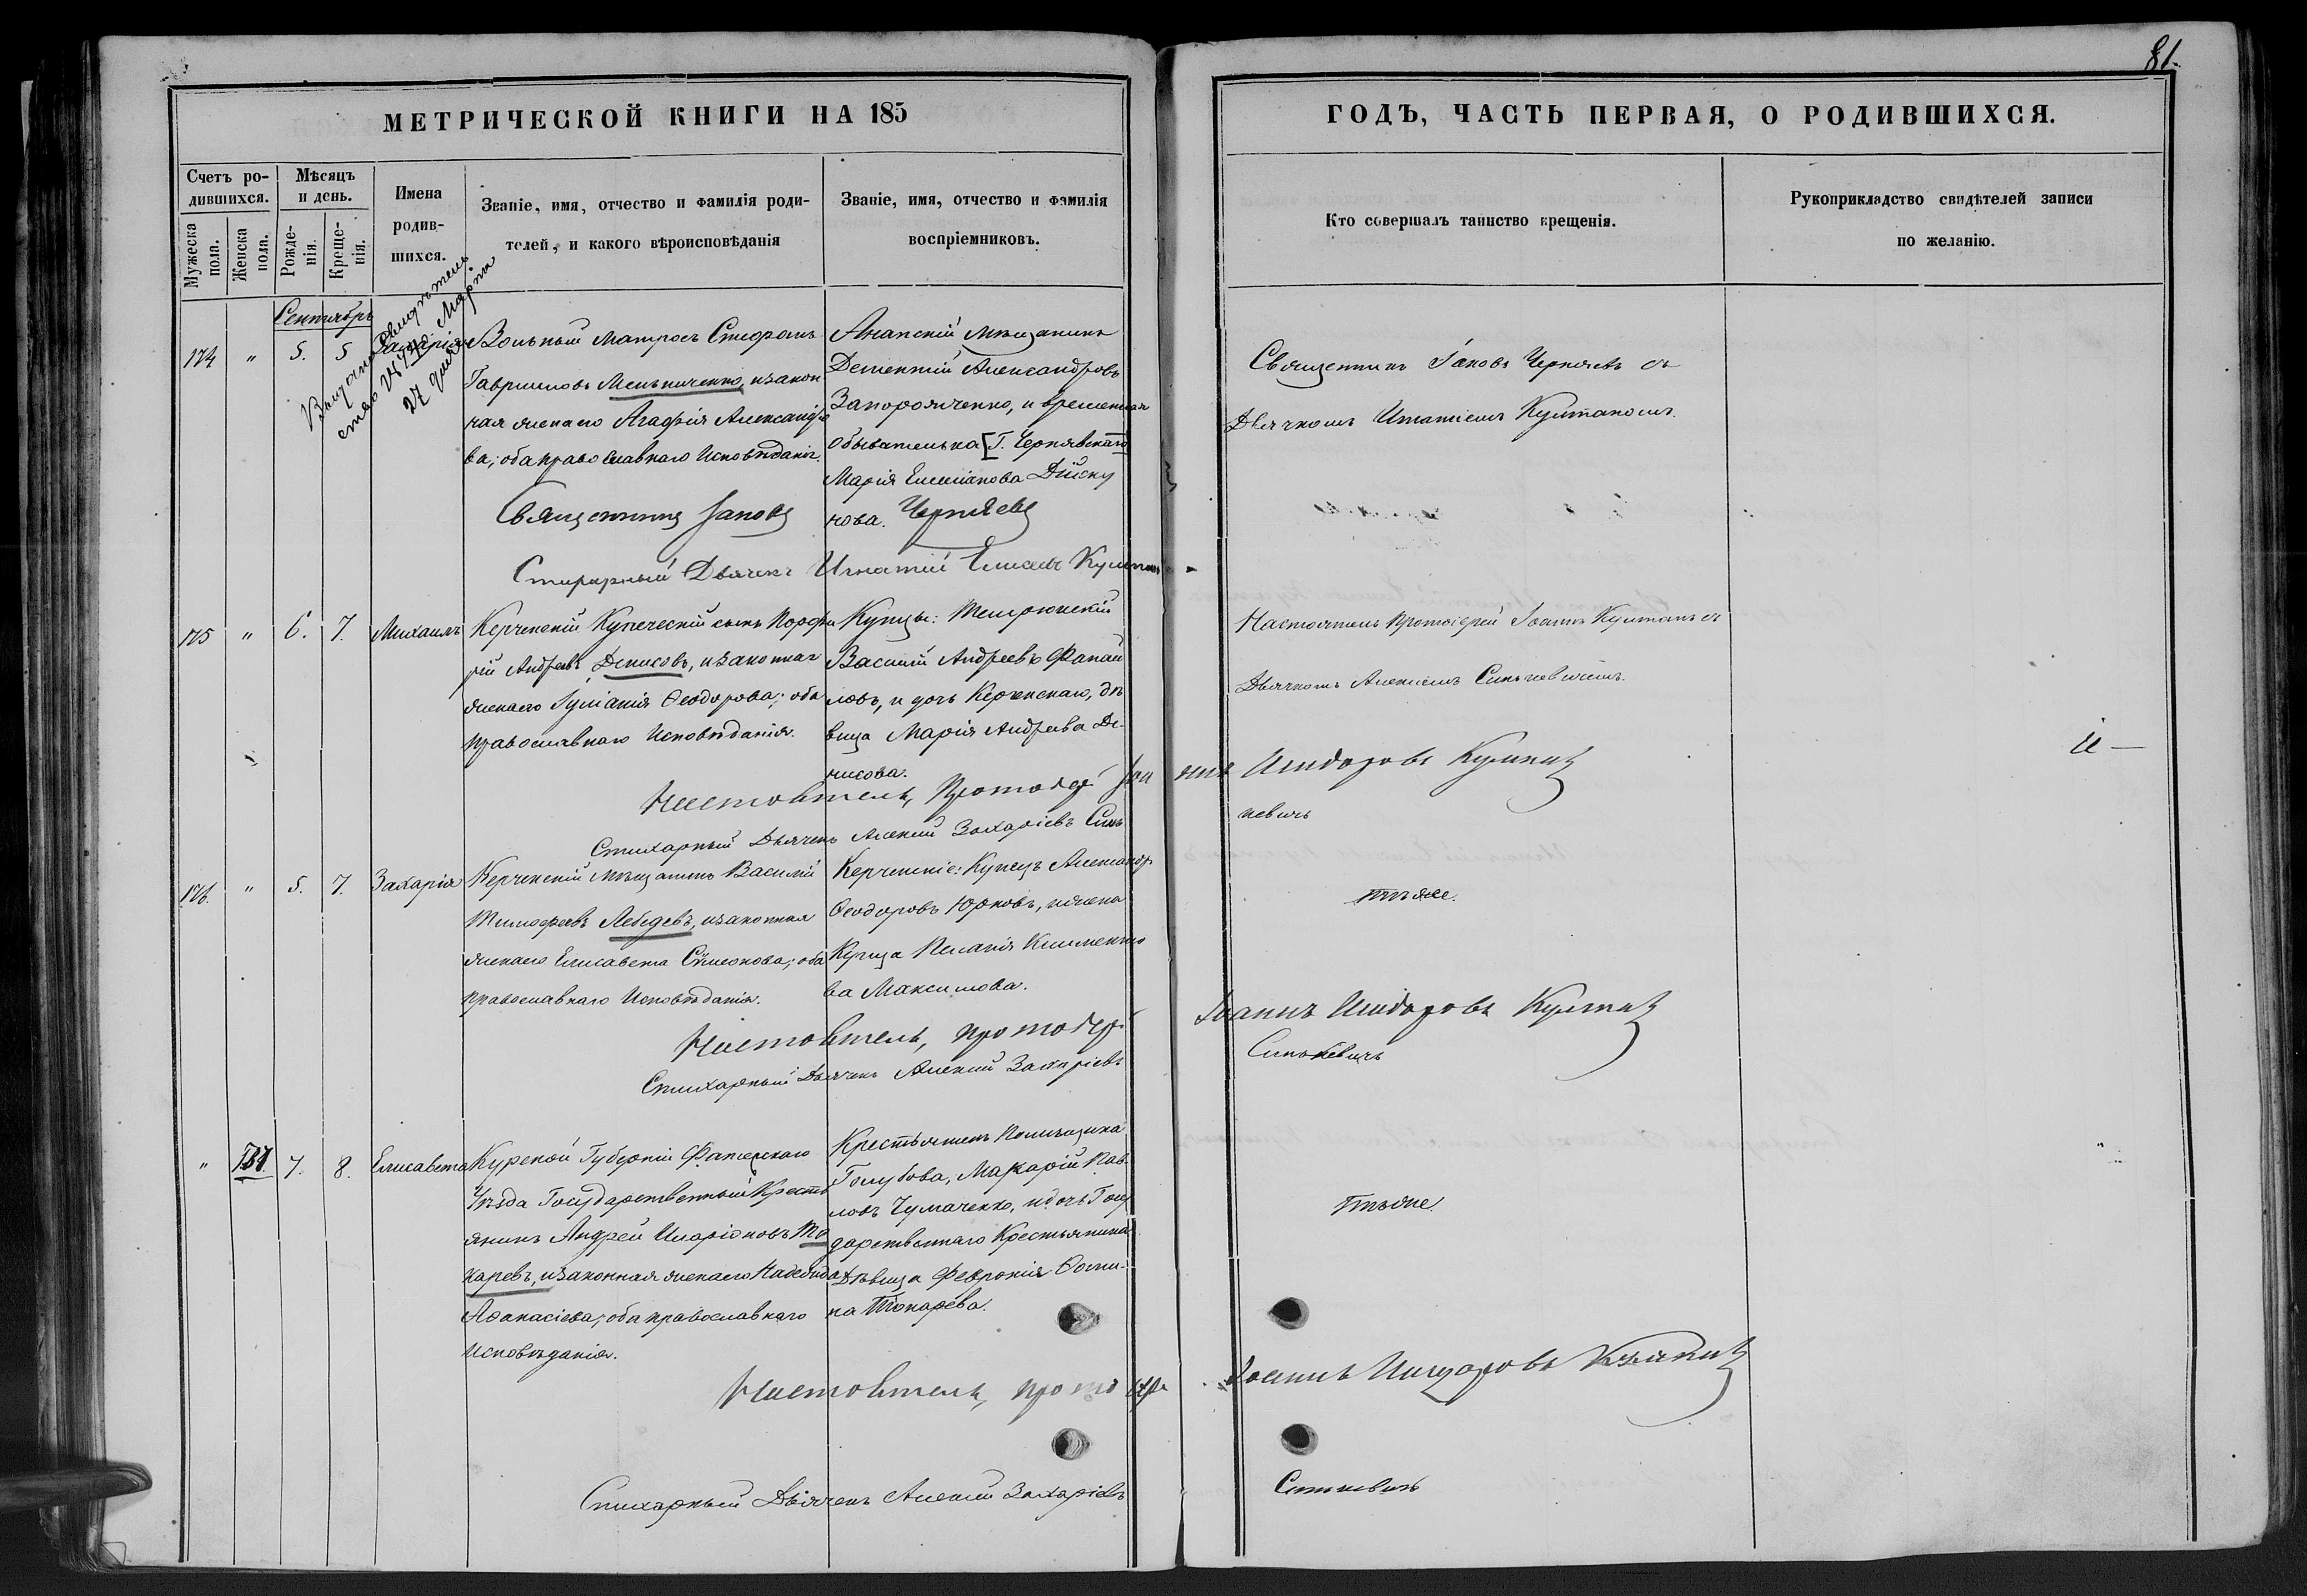 81.
МЕТРИЧЕСКОЙ КНИГИ НА 185
ГОДЪ, ЧАСТЬ ПЕРВАЯ, О РОДИВШИХСЯ.
Счетъ ро-
дившихся.
Мѣсяцъ
и день.
Мужеска
пола.
Женска
пола.
Рожде-
нія.
Креще-
нія.
Имена
родив-
шихся.
Званіе, имя, отчество и фамилія роди-
телей, и какого вѣроисповѣданія
Званіе, имя, отчество и фамилія
воспріемниковъ.
Кто совершалъ таинство крещенія.
Рукоприкладство свидѣтелей записи
по желанію.
Сентябрь
Выдано свидѣтель
ство № 740. Марта
27 дня
174 " 5. 5 Захарія
Вольный матросъ Стефанъ
Гавриловъ Мельниченко, и закон
ная жена его Агафія Александро
ва; оба православнаго Исповѣданія.
Анапскій мѣщанинъ
Дементій Александровъ
Запорожченко, и временная
обывателька [Г. Чернявскаго
Марія Емеліанова
нова.
Священникъ Іаковъ Черняевъ съ
Дьячкомъ Игнатіемъ Култаномъ.
Священникъ Іаковъ Черняевъ
Стихарный Дьячекъ Игнатій Елисеевъ
175 " 6. 7. Михаилъ
Керченскій Купеческій сынъ Порфи
рій Андреевъ Денисовъ, и законная
жена его Іуліанія Ѳеодорова; оба
православнаго Исповѣданія.
Купцы: Темрюкскій
Василій Андреевъ
ловъ, и дочь Керченскаго, дѣ
вица Марія Андреева Де-
нисова.
Настоятель Протоіерей Іоаннъ Култанъ съ
Дьячкомъ Алексіемъ Синькевичемъ.
Настоятель, Протоіер. Іоаннъ Исидоровъ
Стихарный Дьячекъ Алексій Захаріевъ Синь
кевичъ
176. " 5. 7. Захарія
Керченскій мѣщанинъ Василій
Тимофеевъ Лебедевъ, и законная
жена его Елисавета Сѵмеонова; оба
православнаго Исповѣданія.
Керченскіе: Купецъ Александр
Ѳеодоровъ Юрковъ, и жена
Купца Пелагія Клименто
ва Максимова.
тѣ же.
Настоятель, протоіер. Іоаннъ Исидоровъ
Стихарный Дьячекъ Алексій Захаріевъ
Синькевичъ
" 131. 7. 8. Елисавета
Курской Губерніи Фатежскаго
Уѣзда Государственный Кресть
янинъ Андрей Иларіоновъ То
каревъ, и законная жена его Надежда
Аѳанасіева; оба православнаго
Исповѣданія.
Крестьянинъ Помѣщика
Голубова, Макарій Пав-
ловъ Чумаченко, и дочь Госу
дарственнаго Крестьянина
Дѣвица Февронія Ѳоми-
на Токарева.
тѣ же.
Настоятель, протоіер. Іоаннъ Исидоровъ
Стихарный Дьячекъ Алексій Захаріевъ
Синькевичъ